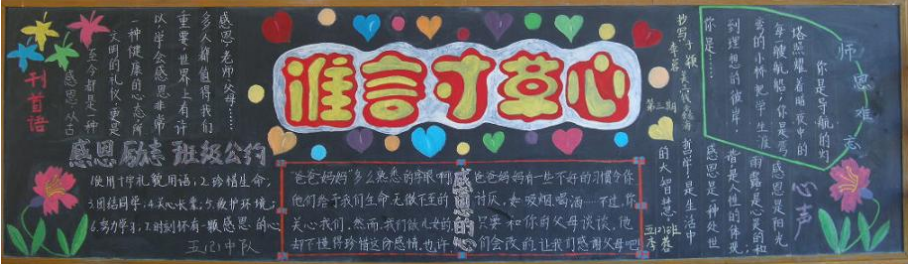 刊首语
感恩,从古
至今都是一种
文明的礼仪,更是
一种健康的心态,所
以,学会感恩非常
重要,世界上有许
多人都值得我们
感恩老师父母……
感恩励志 班级公约
使用十字礼貌用语;2.珍惜生命;
3.团结同学;4.关心长辈;5.爱护环境;
6.努力学习;7.时刻怀有一颗感恩的心
五(2)中队
谁言寸草心
第三期
感恩的心
爸爸妈妈"多么熟悉的字眼啊!
他们给于我们生命,无微不至的
关心我们,然而,我们做儿女的
却不懂得珍惜这份感情,也许
爸爸妈妈有一些不好的习惯令你
讨厌,如吸烟、喝酒……不过,你
只要和你的父母谈谈,他
们会改的,让我们感谢父母吧
师恩难忘
你是导航的灯
塔,照耀着暗夜中的
每艘航船;你是弯
弯的小桥,把学生渡
到理想的彼岸。
你是……
心声
感恩是阳光
雨露,是心灵的
是人性的体现;
感恩是一种处世
哲学,是生活中
的大智慧